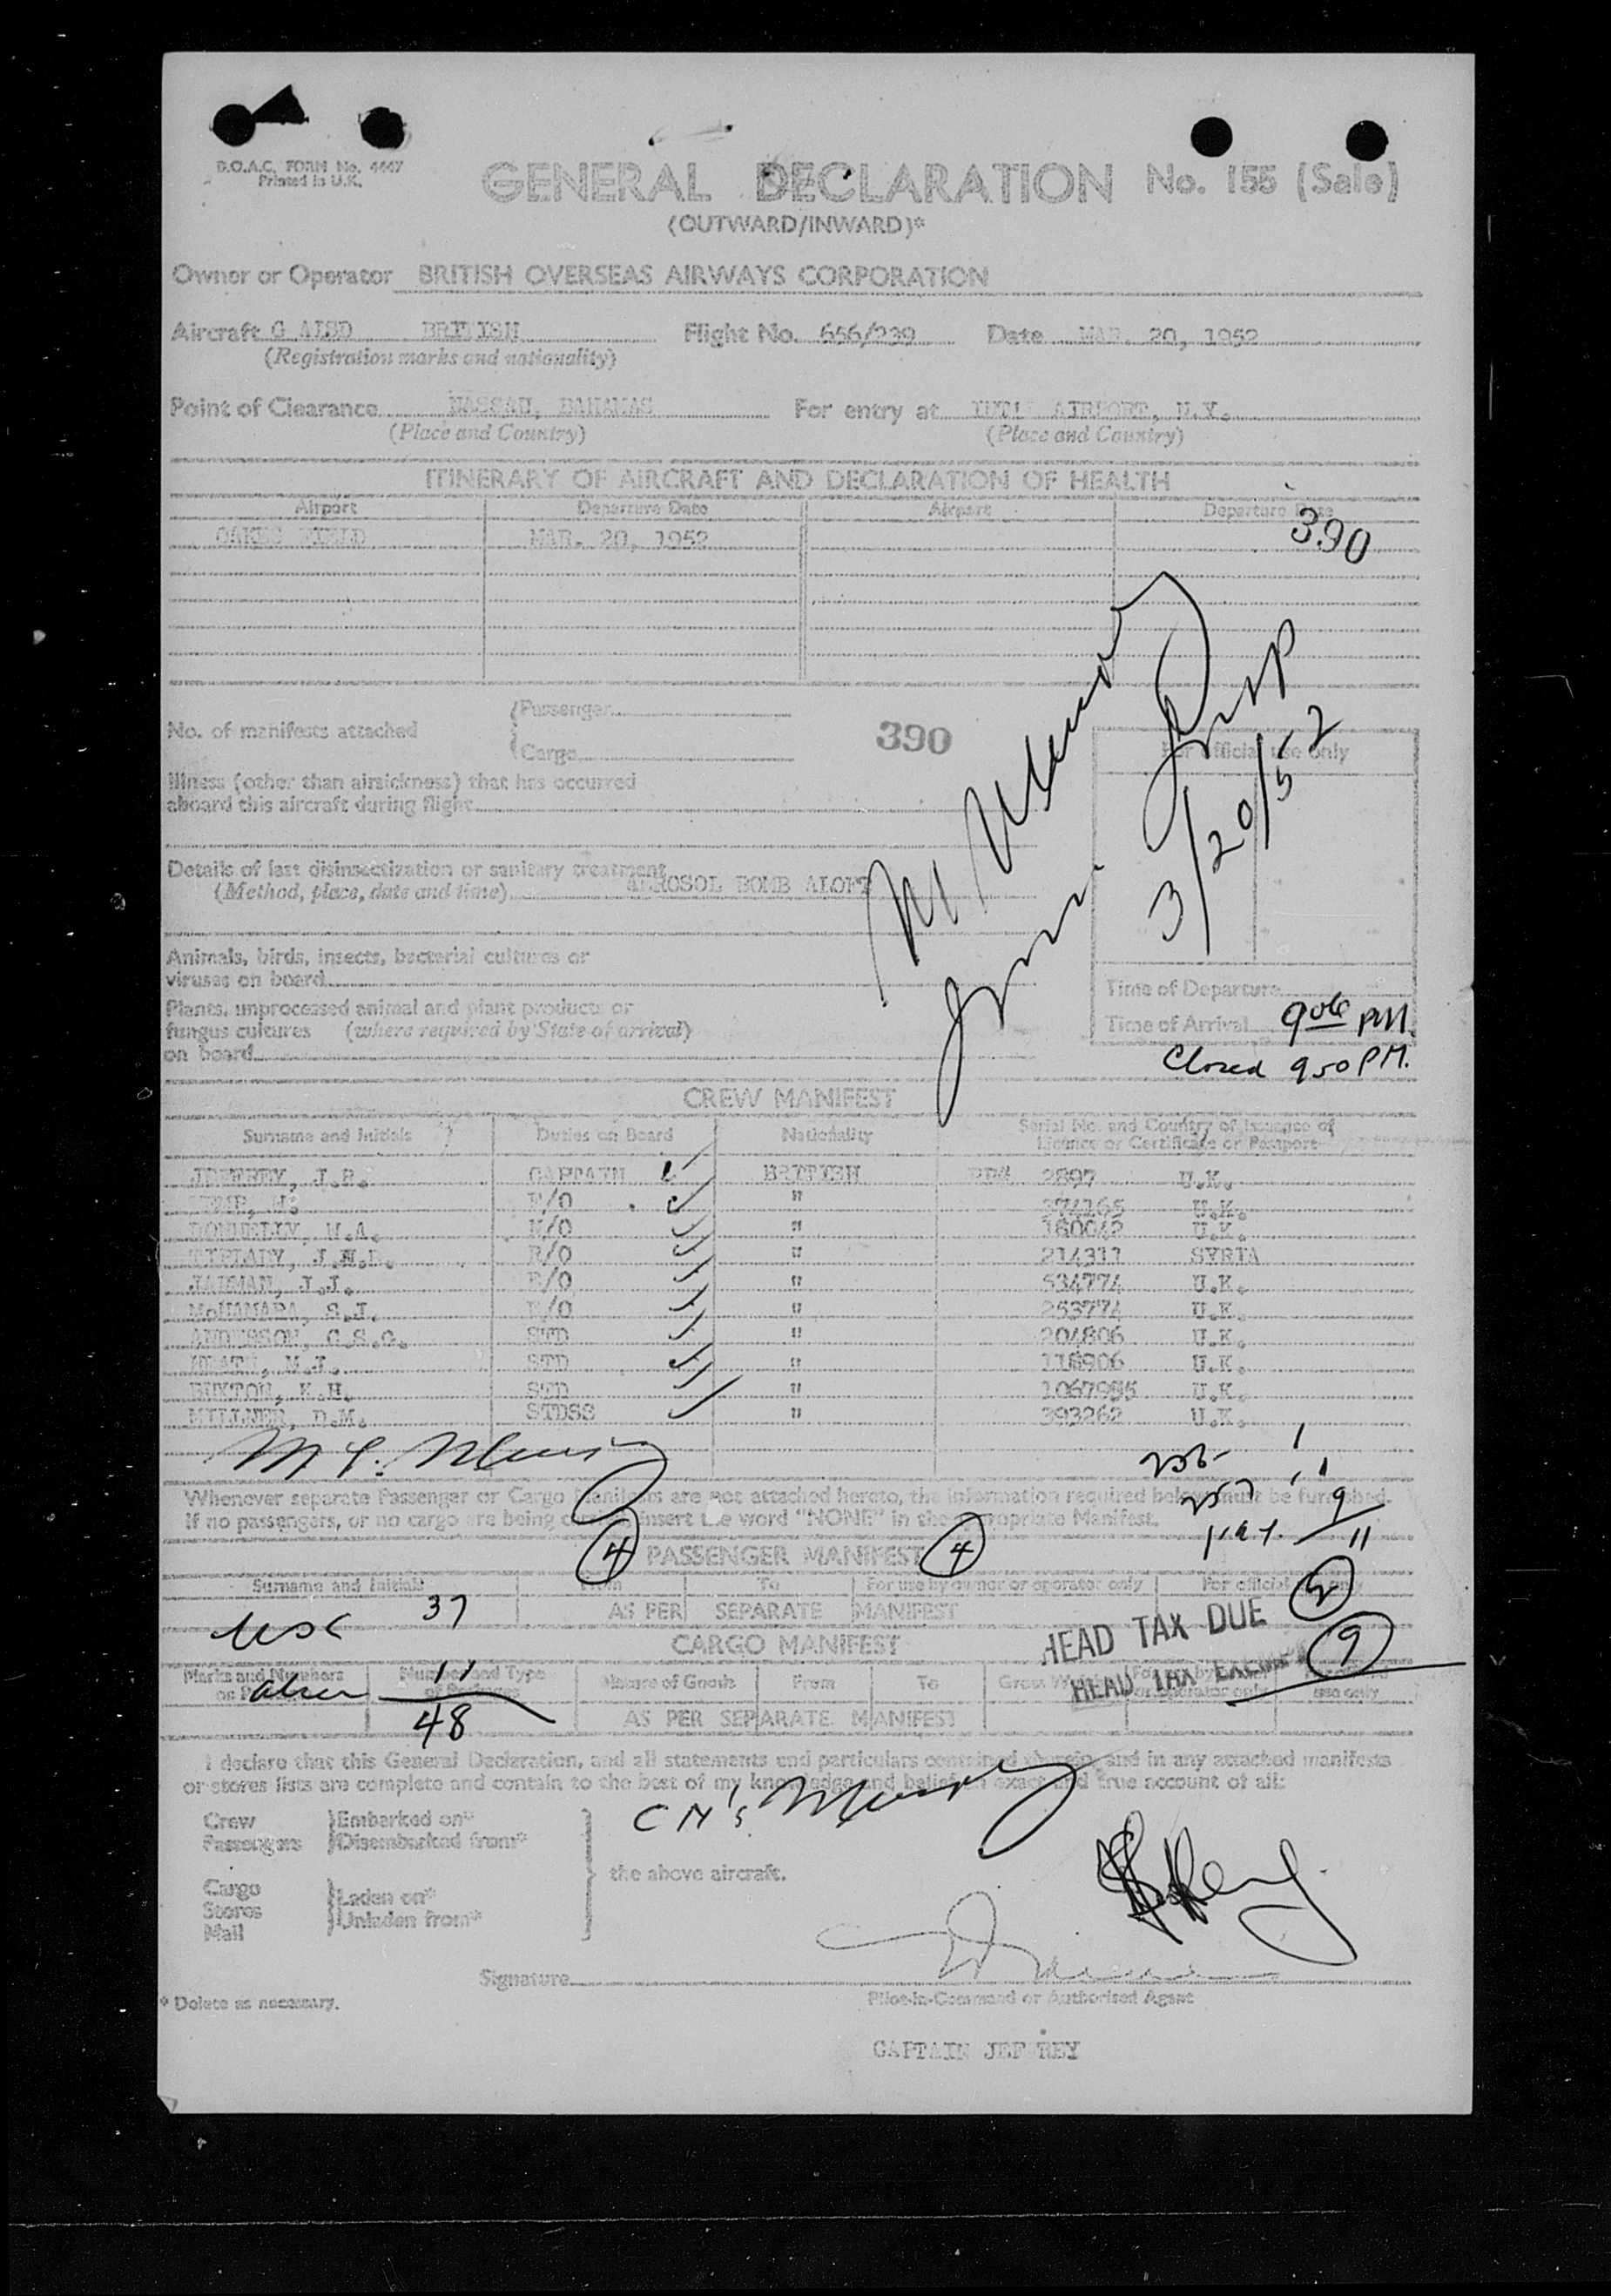 B.O.A.C. FORM No. 4447
Printed in U.K.
GENERAL DECLARATION No. 155 (Sale)
(OUTWARD/INWARD)*
Owner or Operator BRITISH OVERSEAS AIRWAYS CORPORATION
Aircraft BRITISH Flight No. 656/239 Date MAR. 20, 1952
(Registration marks and nationality)
Point of Clearance NASSAU, BAHAMAS For entry at AIRPORT, N.Y.
(Place and Country) (Place and Country)
ITINERARY OF AIRCRAFT AND DECLARATION OF HEALTH
Airport Departure Date Airport Departure Date
OAKES FIELD MAR. 20, 1952 390
No. of manifests attached
Passenger
Cargo
390
For official use only
3/20/52
Illness (other than airsickness) that has occurred
aboard this aircraft during flight
Details of last disinsectization or sanitary treatment
(Method, place, date and time) AEROSOL BOMB ALOFT
Animals, birds, insects, bacterial cultures or
viruses on board
Plants, unprocessed animal and plant products or
fungus cultures (where required by State of arrival)
on board
Time of Departure
Time of Arrival 906 PM.
Closed 950 PM.
CREW MANIFEST
Surname and Initials Duties on Board Nationality Serial No. and Country of Issuance of
Licence or Certificate or Passport
JEFFREY, J.P. CAPTAIN BRITISH PP# 2897 U.K.
F/O " 374165 U.K.
DONNELLY, W.A. N/O " 160042 U.K.
J.N.B. R/O " 214311 SYRIA
J.J. E/O " 534774 U.K.
McNAMARA, S.J. " 253774 U.K.
ANDERSON, G.S.G. STD " 204806 U.K.
HEATH, M.J. STD " 118906 U.K.
BUXTON, K.H. STD " 1067955 U.K.
MILLNER, D.M. STDSS " 393262 U.K.
Whenever separate Passenger or Cargo Manifests are not attached hereto, the information required below must be furnished.
If no passengers, or no cargo are being insert the word "NONE" in the appropriate Manifest.
9
11
4 PASSENGER MANIFEST 4
Surname and Initials From To For use by owner or operator only For official use only
AS PER SEPARATE MANIFEST
USC 37
HEAD TAX DUE 2
CARGO MANIFEST
HEAD TAX EXEMPT 9
Marks and Numbers Number and Type Nature of Goods From To
alien 11
48
AS PER SEPARATE MANIFEST
I declare that this General Declaration, and all statements and particulars contained therein, and in any attached manifests
or stores lists are complete and contain to the best of my knowledge and belief an exact and true account of all:
Crew
Passengers
Embarked on*
Disembarked from*
the above aircraft.
Cargo
Stores
Mail
Laden on*
Unladen from*
Signature
* Delete as necessary. Pilot-in-Command or Authorised Agent
CAPTAIN JEFFREY